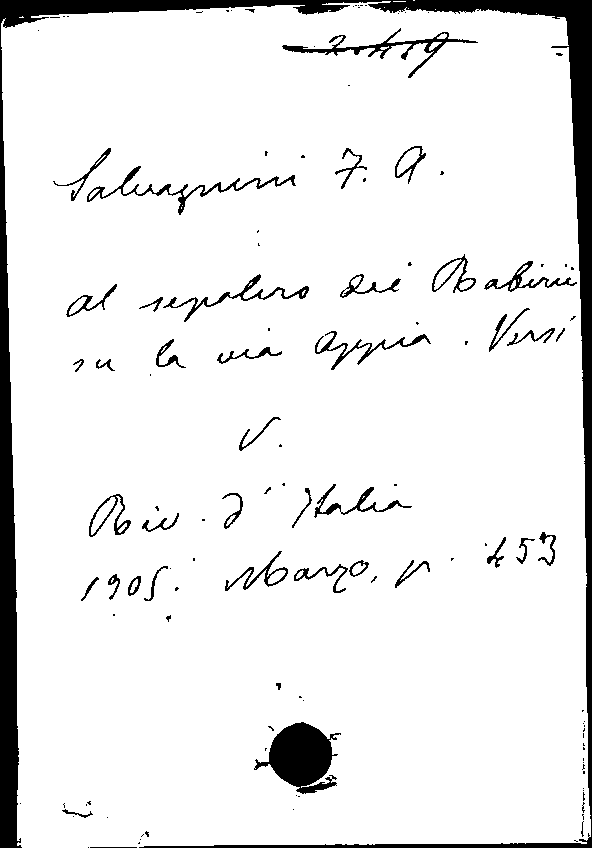 Salvagnini F. A.
Al sepolcro dei Rabirii
su la via Appia. Versi
V.
Riv. d'Italia
1905. Marzo, p. 453